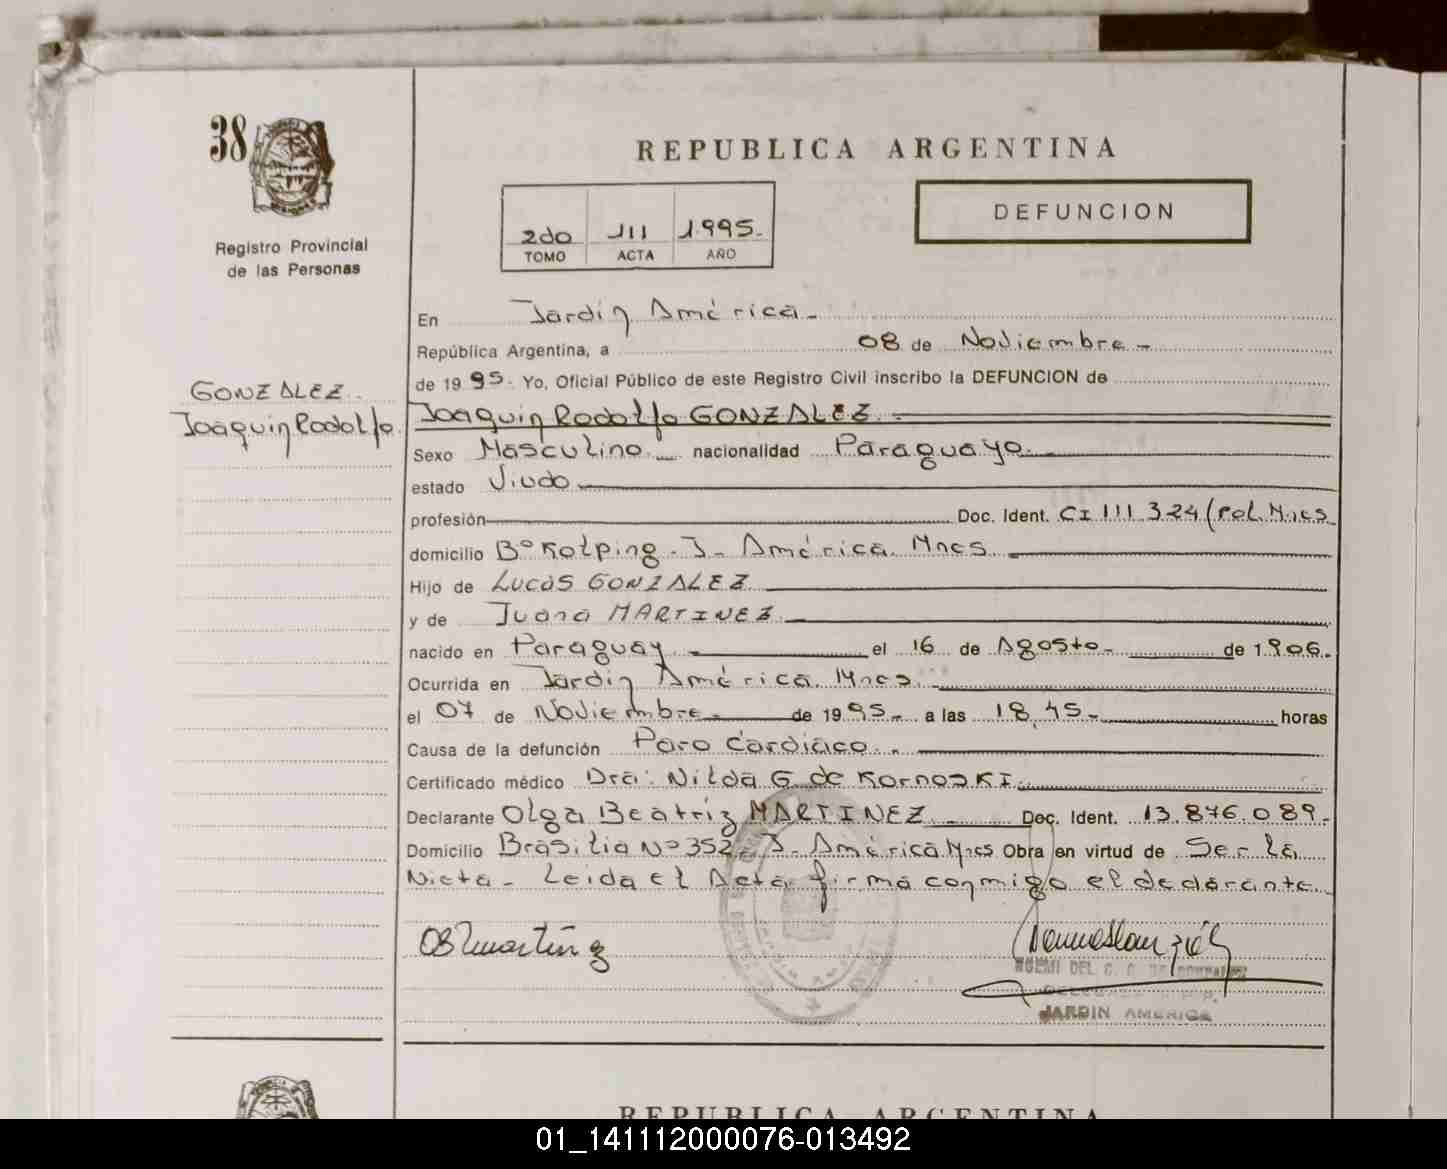 38
Registro Provincial
de las Personas
REPUBLICA ARGENTINA
2do 111 1995.
TOMO ACTA AÑO
DEFUNCION
En Jardín América -
República Argentina, a 08 de Noviembre -
de 1995. Yo, Oficial Público de este Registro Civil inscribo la DEFUNCION de
GONZALEZ
Joaquin Rodolfo
Joaquin Rodolfo GONZALEZ
Sexo Masculino nacionalidad Paraguayo
estado Viudo
profesión Doc. Ident. CI 111 324 (Pol. Mnes
domicilio B° Kolping. J- América. Mnes
Hijo de Lucas GONZALEZ
y de Juana MARTINEZ
nacido en Paraguay el 16 de Agosto de 1906.
Ocurrida en Jardín América. Mnes.
el 07 de Noviembre de 1995 a las 18,45 horas
Causa de la defunción Paro Cardiaco
Certificado médico Dra: Nilda G de
Declarante Olga Beatriz MARTINEZ Doc. Ident. 13.876.089.
Domicilio Brasilia N° 352, J- América Mnes Obra en virtud de Ser la
Nieta - Leida el Acta, firma conmigo el declarante
OBMartinez
JARDIN AMERICA
REPUBLICA ARGENTINA
01_141112000076-013492